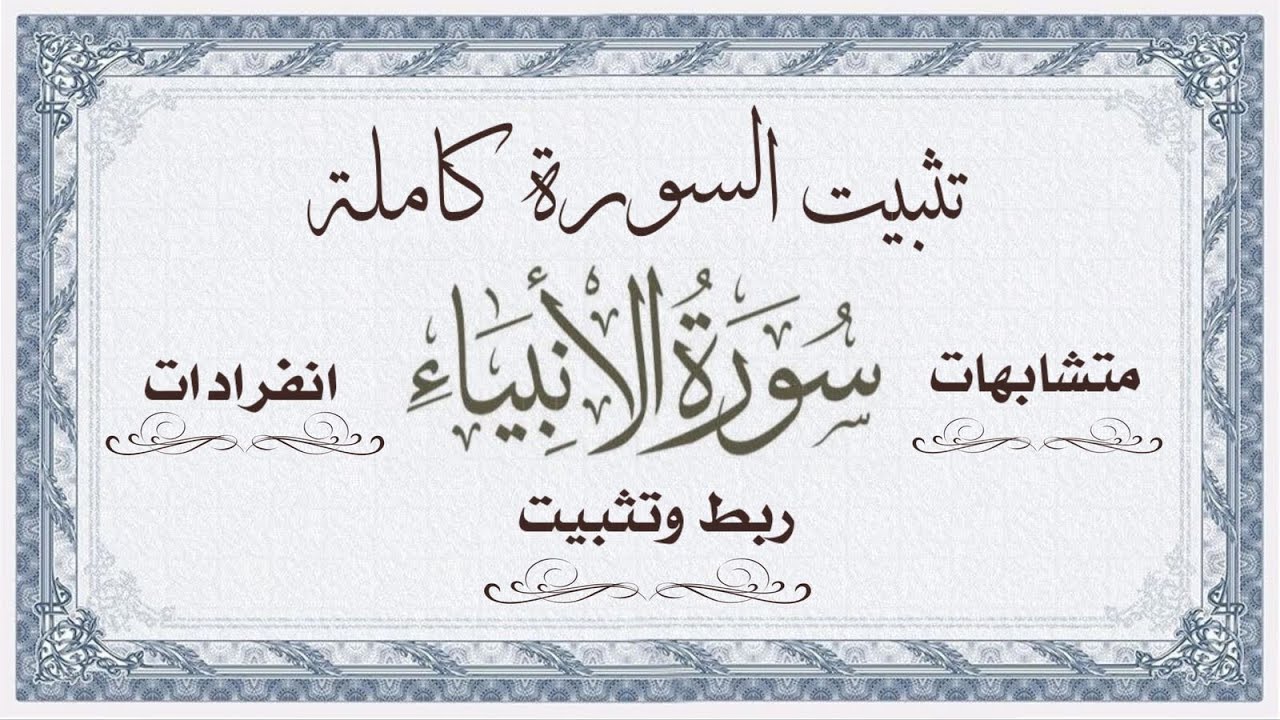 تثبيت السورة كاملة
سُورَةُ الْأَنْبِيَاءِ
متشابهات
انفرادات
ربط وتثبيت